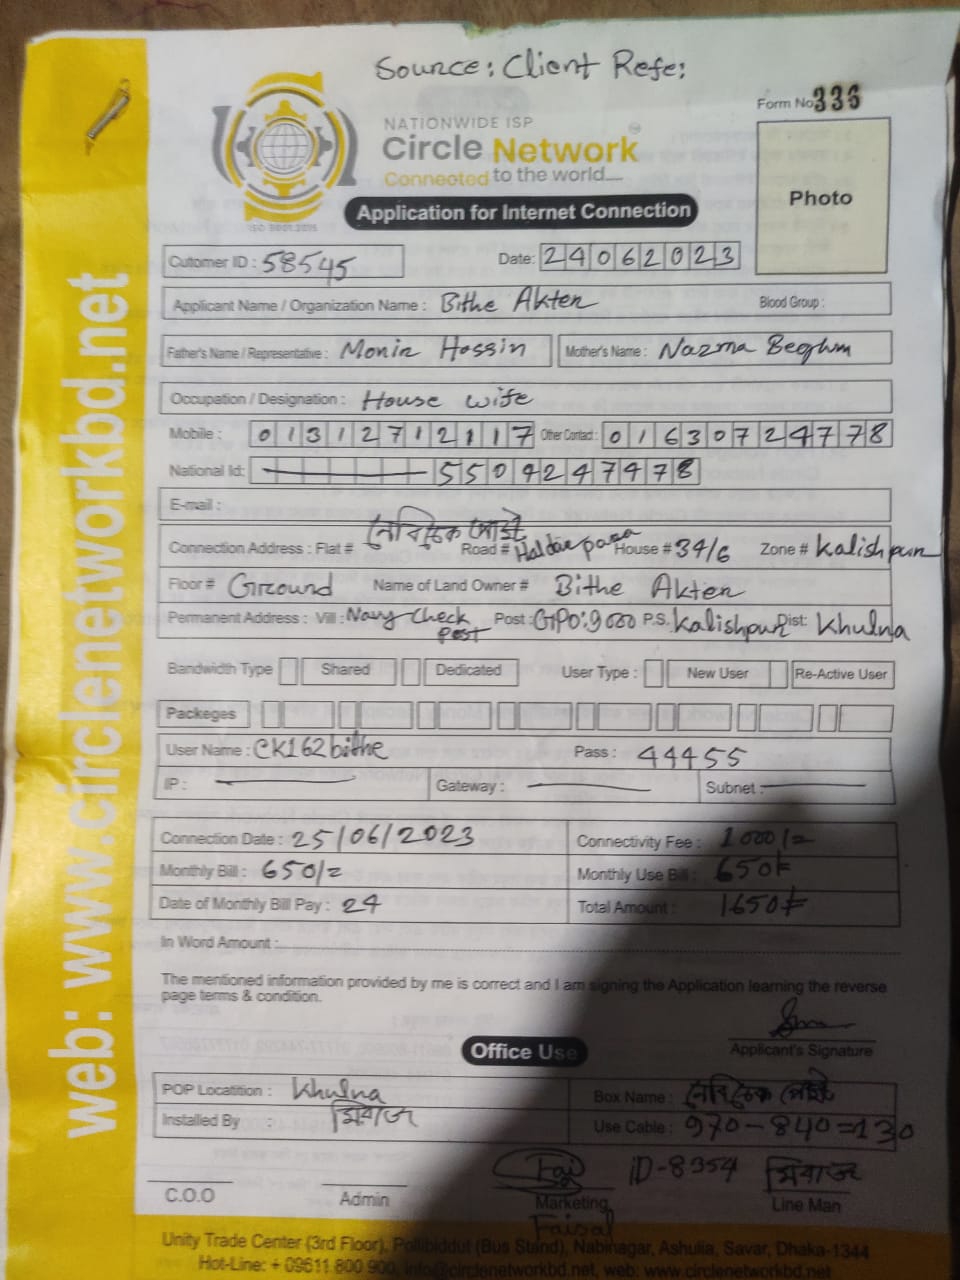 Source: Client Refe:
Form No 336
NATIONWIDE ISP
Circle Network
Connected to the world....
ISO 9001:2015
Photo
Application for Internet Connection
Cutomer ID : 58545 Date: 24062023
Applicant Name / Organization Name : Bithe Akter Blood Group :
Father's Name / Representative : Monir Hossin Mother's Name : Nazma Beghum
Occupation / Designation : House wife
Mobile : 01312712117 Other Contact : 01630724778
National Id: 5509247978
E-mail :
Connection Address : Flat # Road # Haldar para House # 34/6 Zone # Kalishpur
Floor # Ground Name of Land Owner # Bithe Akter
Permanent Address : Vill : Navy Check Post Post : GPO:9000 P.S. Kalishpur Dist: Khulna
Bandwidth Type Shared Dedicated User Type : New User Re-Active User
Packeges
User Name : CK162bithe Pass : 44455
IP : Gateway : Subnet :
Connection Date : 25/06/2023 Connectivity Fee : 1000/=
Monthly Bill : 650/= Monthly Use Bill : 650/=
Date of Monthly Bill Pay : 24 Total Amount : 1650/=
In Word Amount :
The mentioned information provided by me is correct and I am signing the Application learning the reverse
page terms & condition.
Applicant's Signature
Office Use
POP Locatition : Khulna Box Name :
Installed By : মিরাজ Use Cable : 970-840=130
ID-8354 মিরাজ
C.O.O Admin Marketing Line Man
Faisal
Unity Trade Center (3rd Floor), Pollibiddut (Bus Stand), Nabinagar, Ashulia, Savar, Dhaka-1344
Hot-Line: + 09611 800 900, info@circlenetworkbd.net, web: www.circlenetworkbd.net
web: www.circlenetworkbd.net